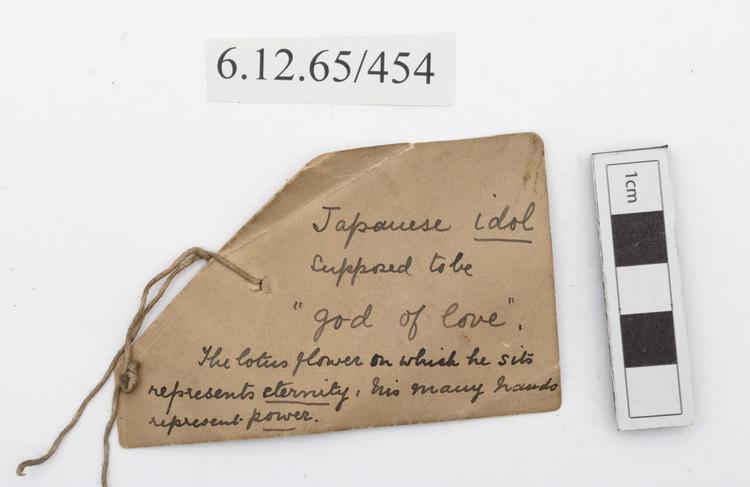 6.12.65/454
Japanese idol
Supposed to be
"god of love".
The lotus flower on which he sits
represents eternity, his many hands
represent power.
1cm